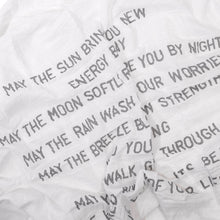 MAY THE SUN BRING YOU NEW
ENERGY BY
MAY THE MOON SOFTLY YOU BY NIGHT
MAY THE RAIN WASH YOUR WORRIES
MAY THE BREEZE BLOW STRENGTH
YOU
THROUGH
WALK
ITS BE
OF YOUR LIFE